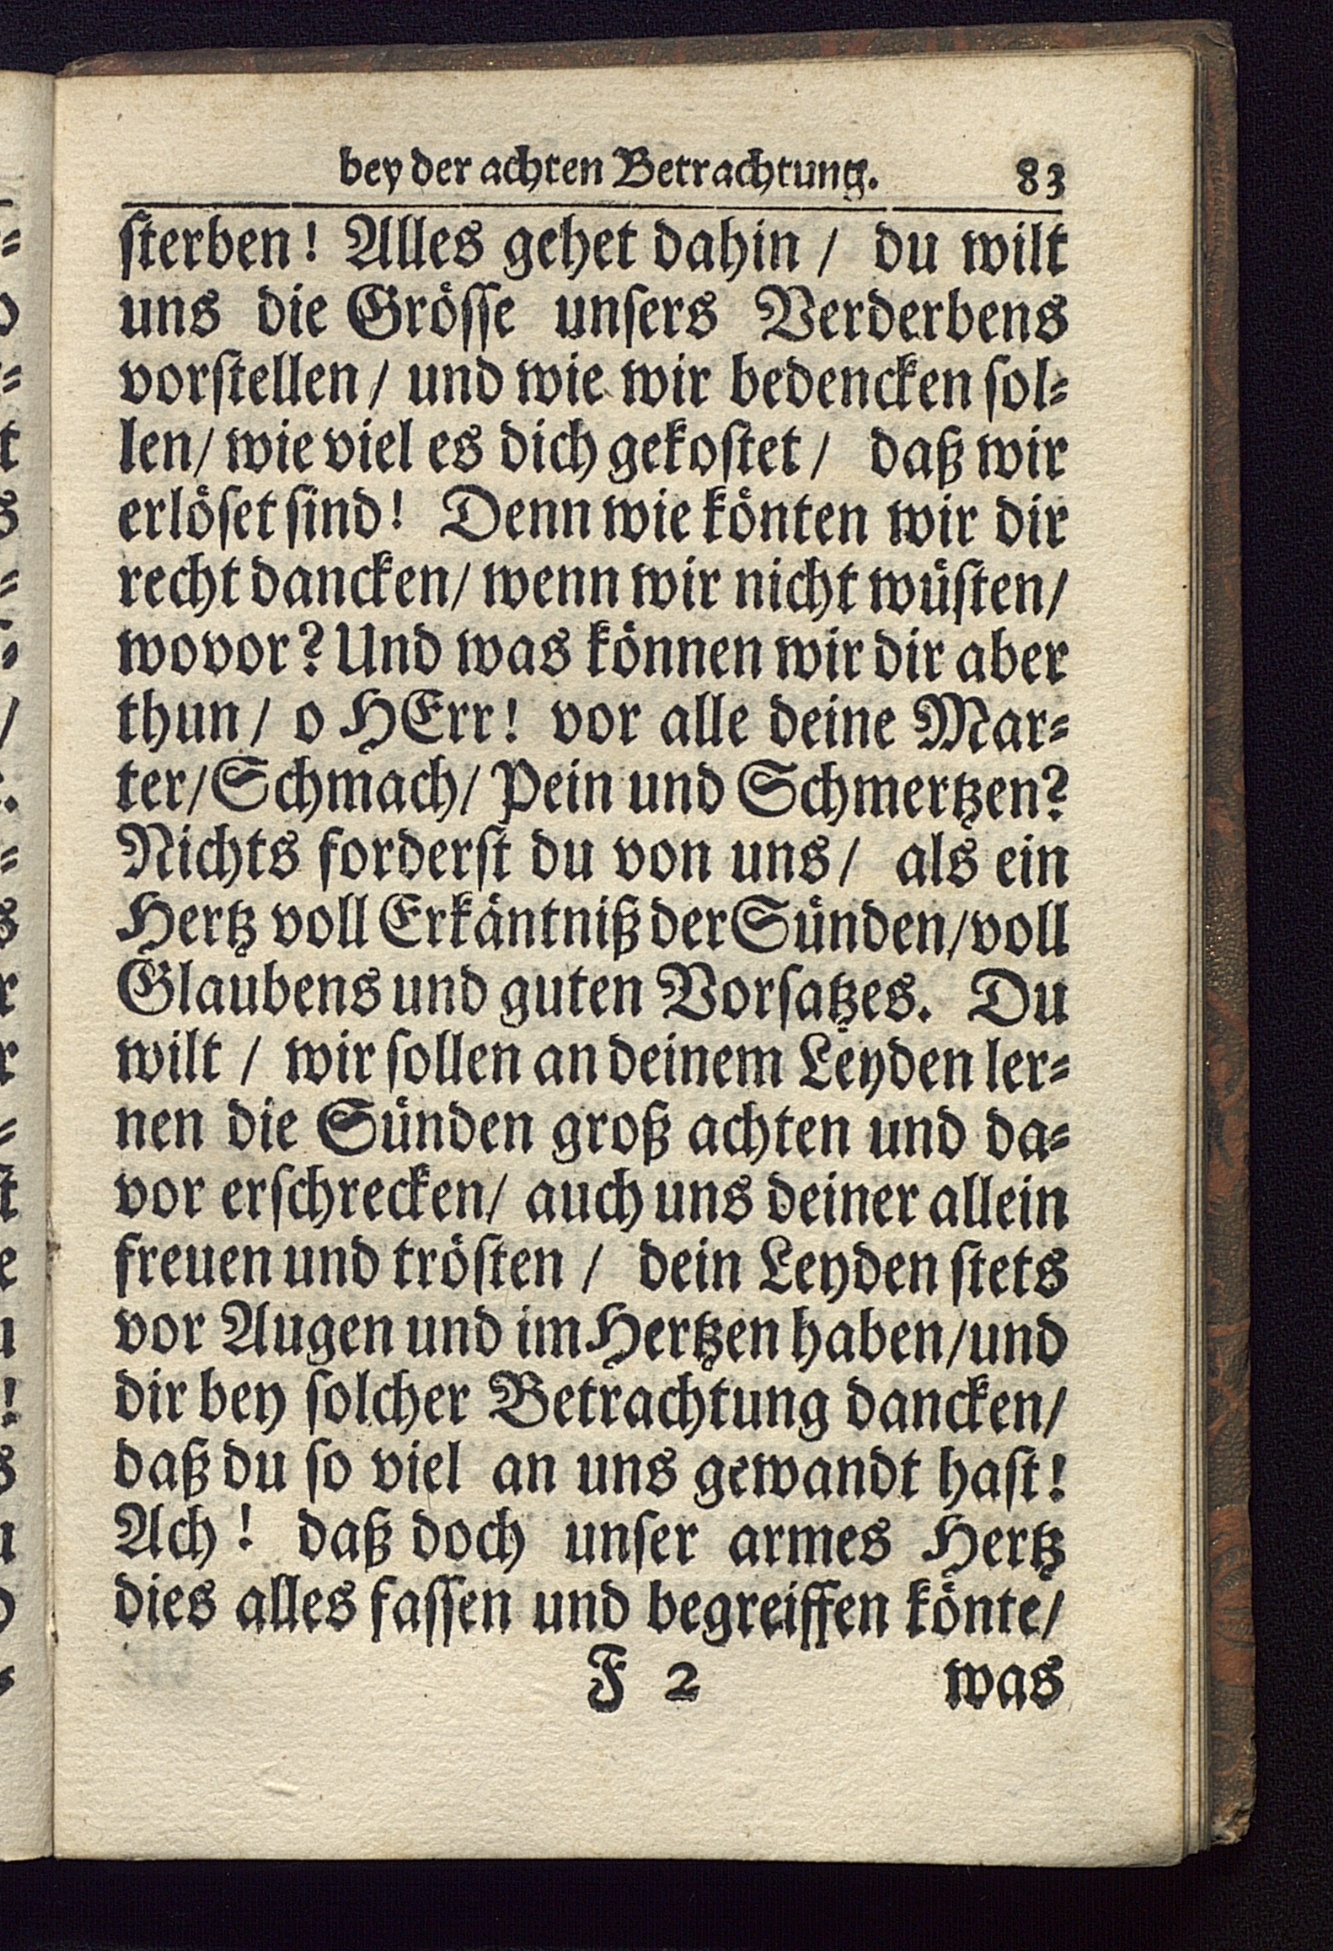 bey der achten Betrachtung. 83
sterben! Alles gehet dahin / du wilt
uns die Grösse unsers Verderbens
vorstellen / und wie wir bedencken sol-
len / wie viel es dich gekostet / daß wir
erlöset sind! Denn wie könten wir dir
recht dancken / wenn wir nicht wüsten /
wovor? Und was können wir dir aber
thun / o HErr! vor alle deine Mar-
ter / Schmach / Pein und Schmertzen?
Nichts forderst du von uns / als ein
Hertz voll Erkäntniß der Sünden / voll
Glaubens und guten Vorsatzes. Du
wilt / wir sollen an deinem Leyden ler-
nen die Sünden groß achten und da-
vor erschrecken / auch uns deiner allein
freuen und trösten / dein Leyden stets
vor Augen und im Hertzen haben / und
dir bey solcher Betrachtung dancken /
daß du so viel an uns gewandt hast!
Ach! daß doch unser armes Hertz
dies alles fassen und begreiffen könte /
F 2 was